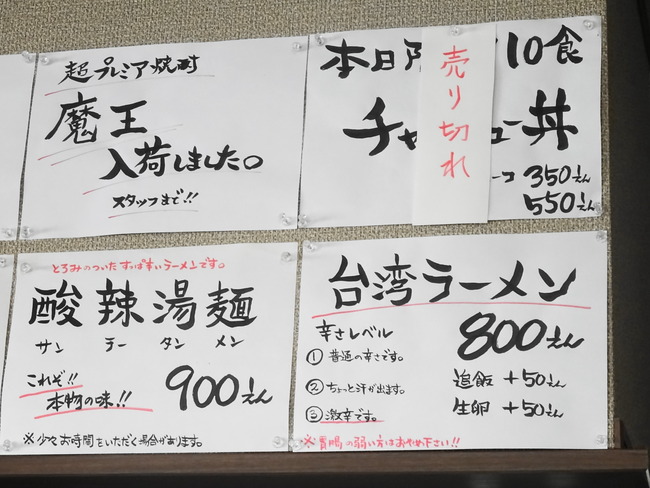 超プレミア焼酎
魔王
入荷しました。
スタッフまで!!
本日 10食
売り切れ
チャ ュー丼
350えん
550えん
とろみのついたすっぱ辛いラーメンです。
酸辣湯麺
サン ラー タン メン
これぞ!!
本物の味!!
900えん
※少々お時間をいただく場合があります。
台湾ラーメン
辛さレベル
800えん
① 普通の辛さです。
② ちょっと汗が出ます。
③ 激辛です。
追飯 +50えん
生卵 +50えん
※胃腸の弱い方はおやめ下さい!!